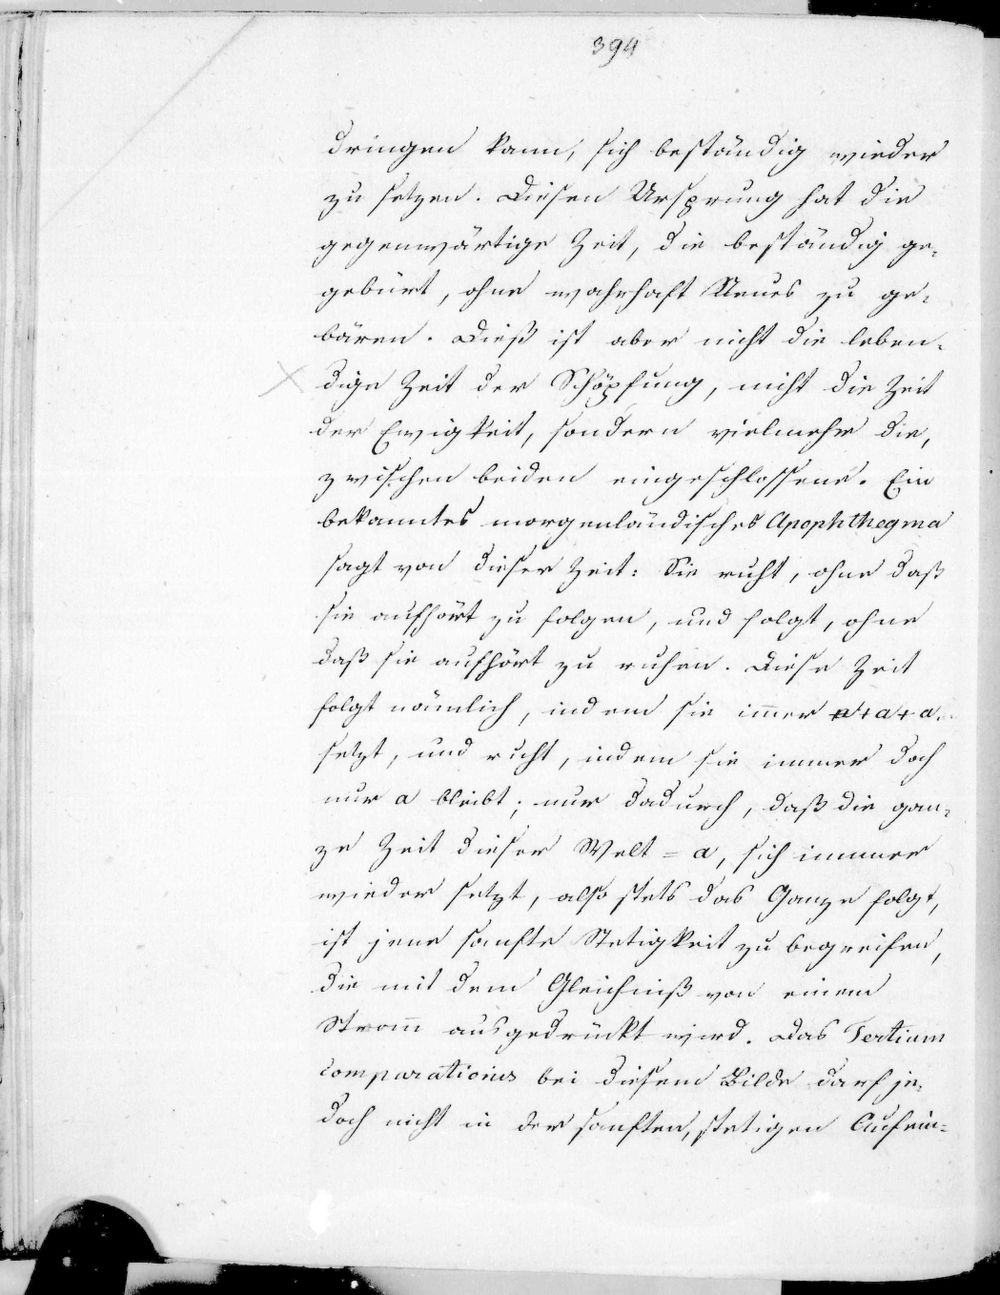 394
dringen kann, sich beständig wieder
zu setzen. Diesen Ursprung hat die
gegenwärtige Zeit, die beständig ge-
gebiert, ohne wahrhaft Neues zu ge-
bären. Dieß ist aber nicht die leben-
dige Zeit der Schöpfung, nicht die Zeit
der Ewigkeit, sondern vielmehr die,
zwischen beiden eingeschlossene. Ein
bekanntes morgenländisches Apophthegma
sagt von dieser Zeit: Sie ruht, ohne daß
sie aufhört zu folgen, und folgt, ohne
daß sie aufhört zu ruhen. Diese Zeit
folgt nämlich, indem sie im̄er a+a+a..
setzt, und ruht, indem sie immer doch
nur a bleibt; nur dadurch, daß die gan-
ze Zeit dieser Welt = a, sich immer
wieder setzt, also stets das Ganze folgt,
ist jene sanfte Stetigkeit zu begreifen,
die mit dem Gleichniß von einem
Strom̄ ausgedrückt wird. Das Tertium
comparationis bei diesem Bilde darf je-
doch nicht in der sanften, stetigen Aufein-